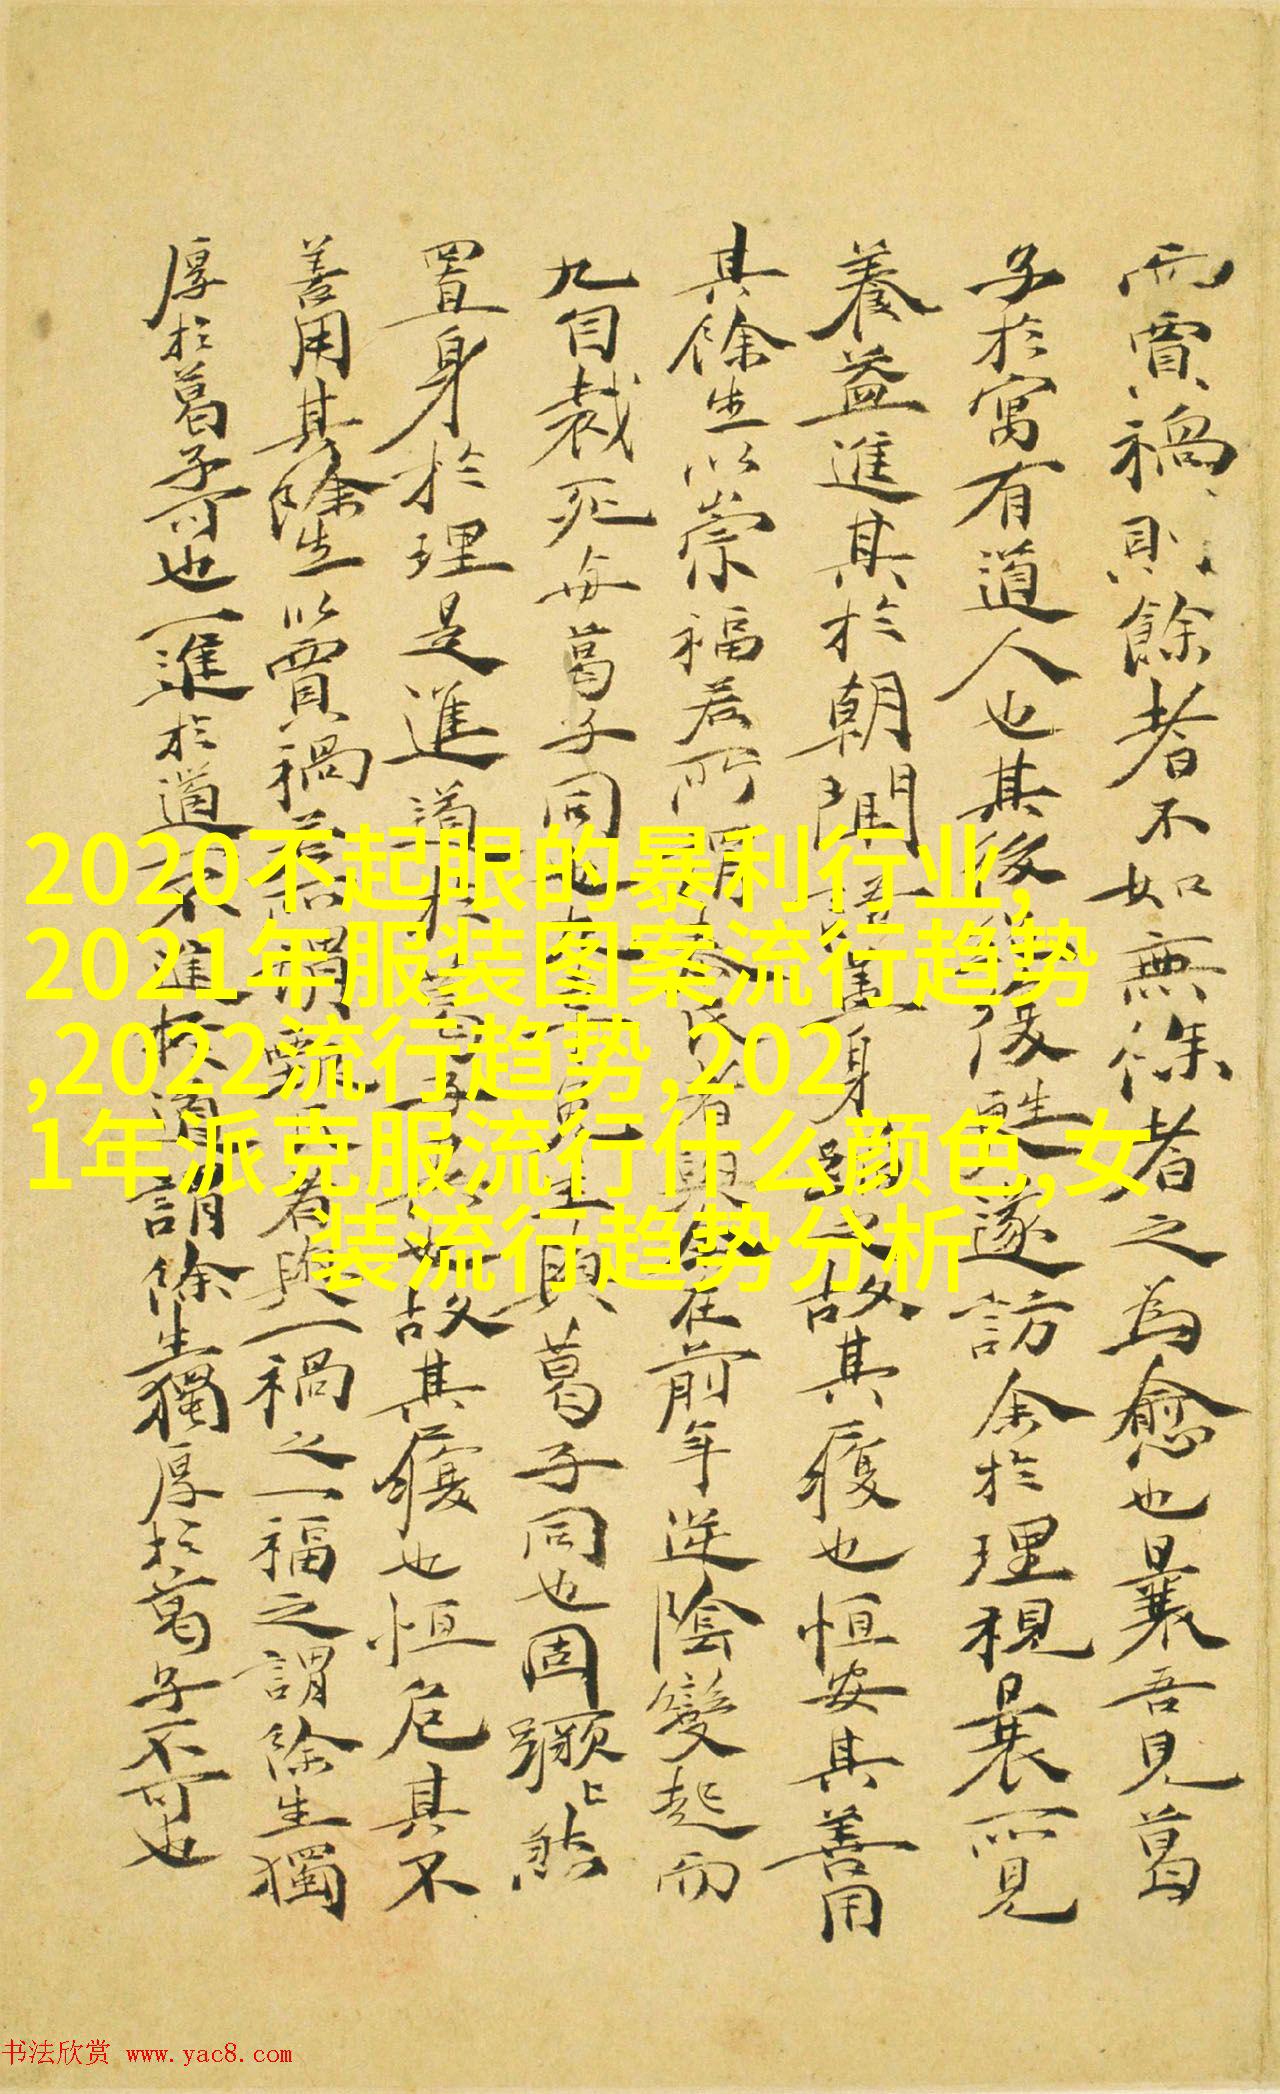 而賈禍則餘者不如無餘者之為愈也曩吾見葛
子於寓有道人也其後
養益進其於朝聞
其餘生以崇福若所謂
九自裁死毋葛子同也
置身於理是進道於葛
善用其除生以賈禍
厚於葛子可也一進於道不進於道謂餘生獨厚於葛子不可也
遂訪余於理視曩所見
身故其履也恒安其善用
在前年逆陰變起而
葛子同也固蹶
故其履也恒危其不
者與一禍之一福之謂除生獨
2020不起眼的暴利行业,
2021年服装图案流行趋势
,2022流行趋势,202
1年派克服流行什么颜色,女
装流行趋势分析
书法欣赏 www.yac8.com